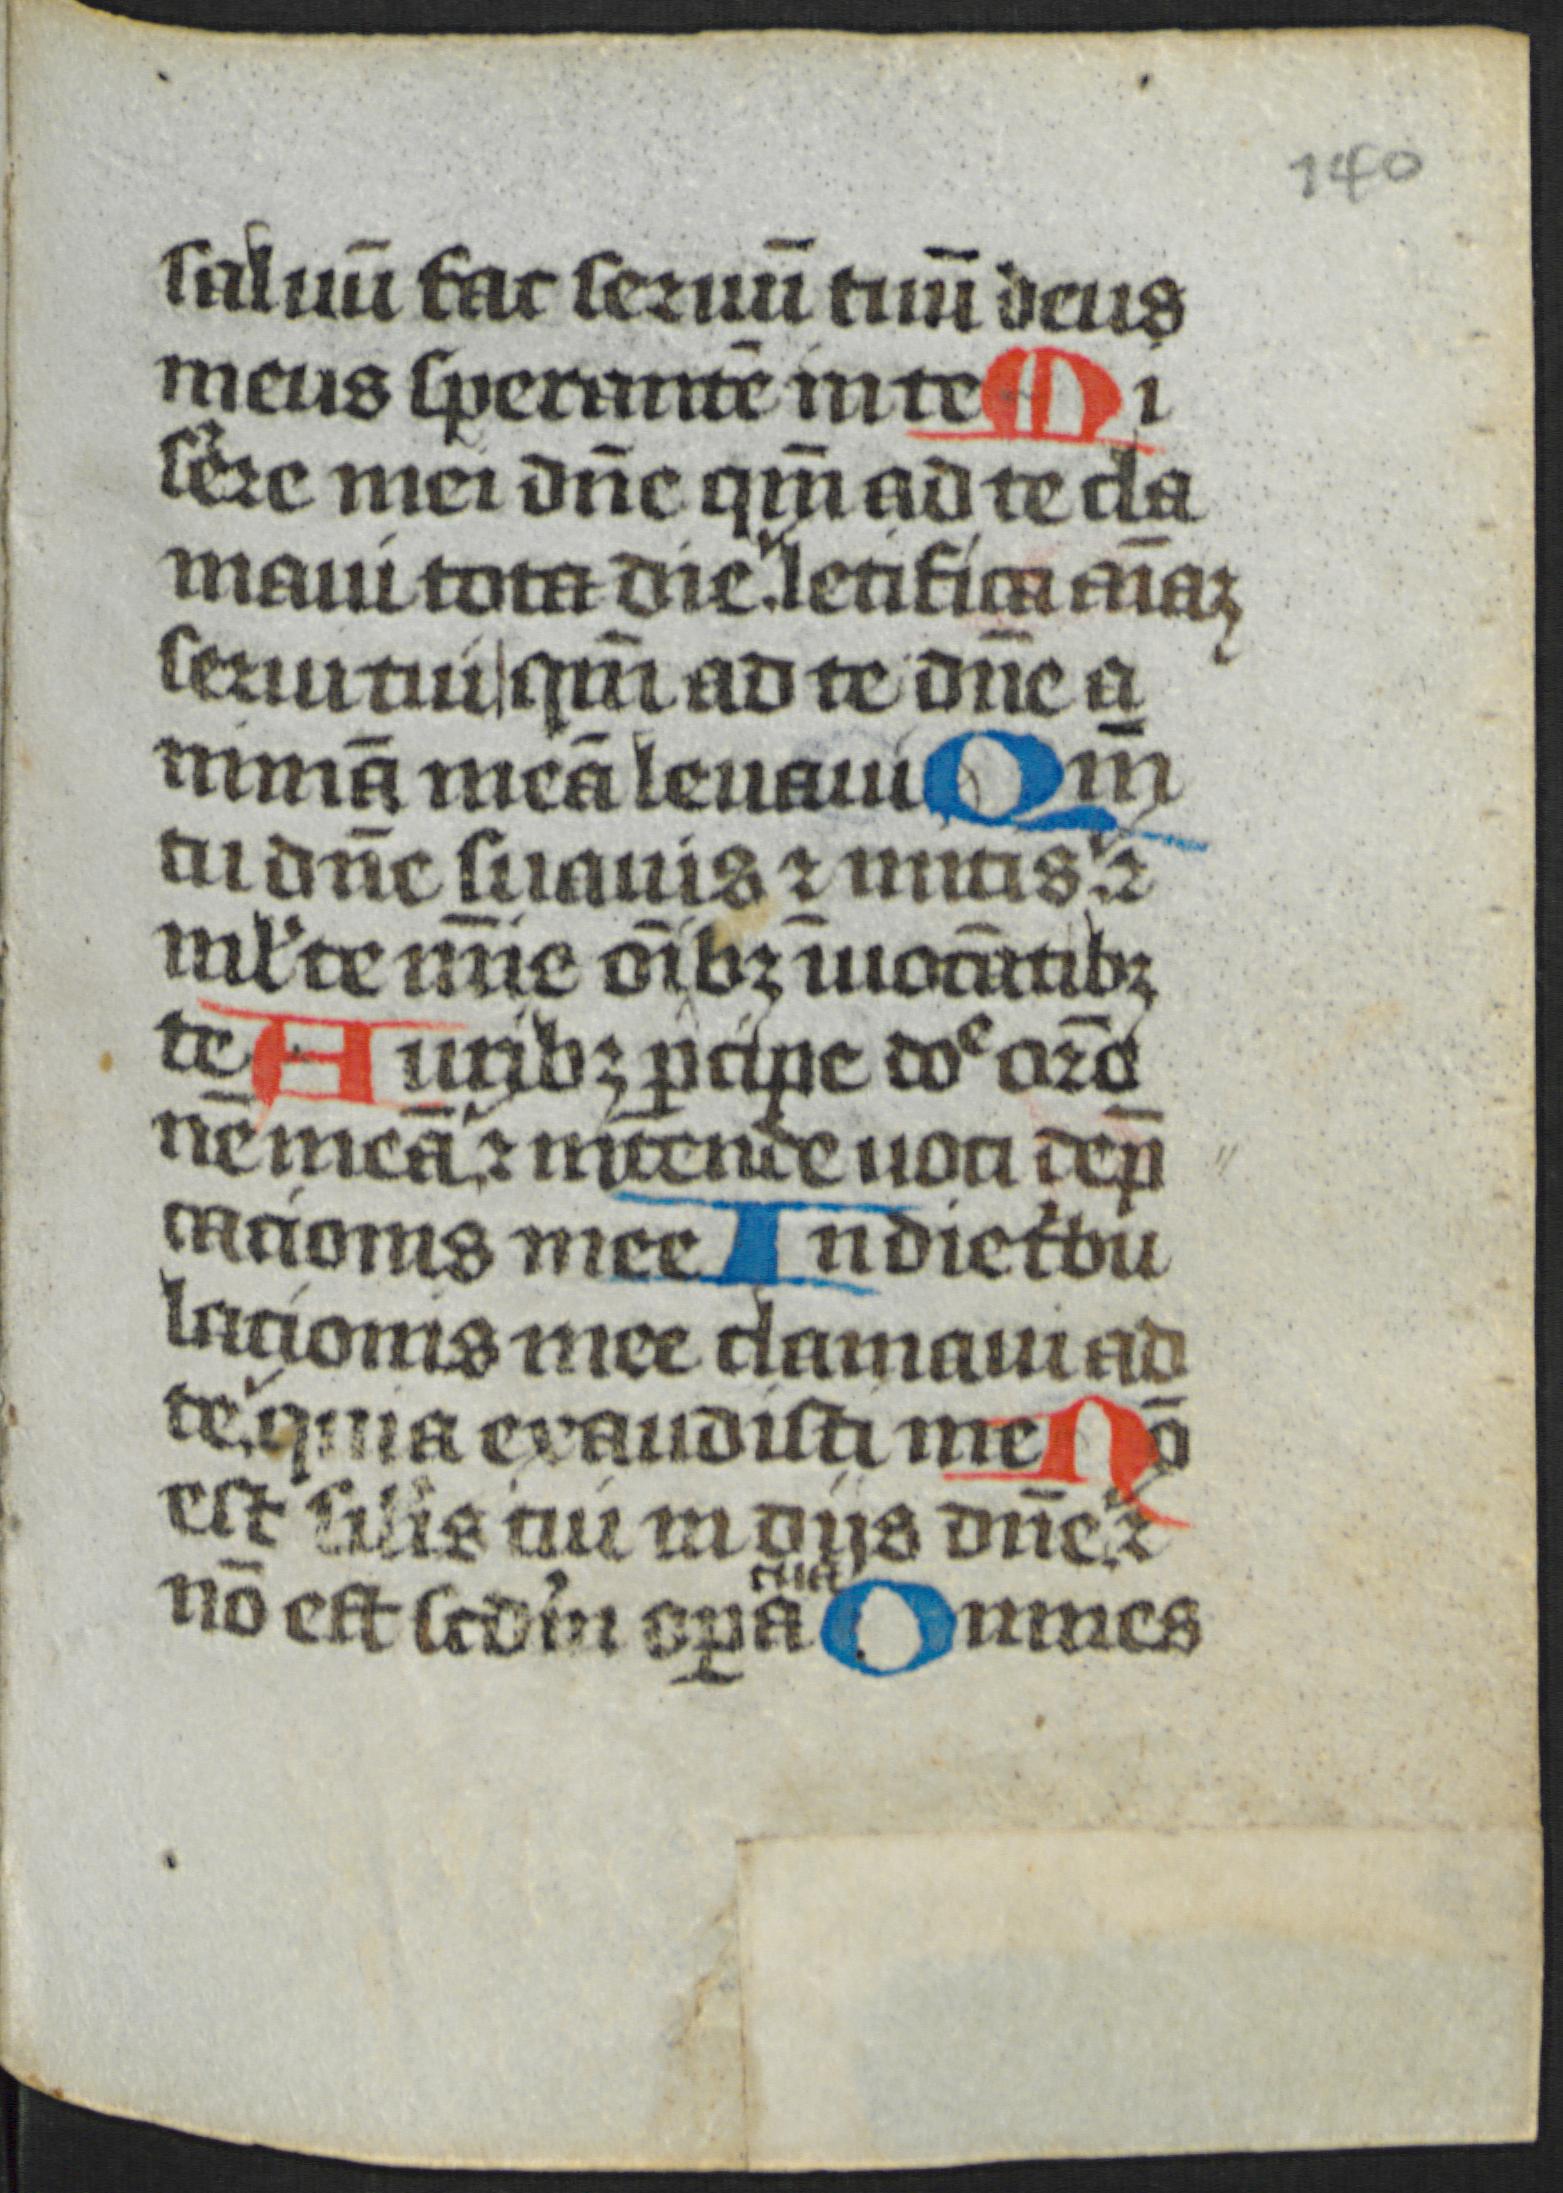 140
saluū fac seruū tuū deus
meus sperantē in te Mi
sere mei dn̄e qm̄ ad te cla
maui tota die letifica aīaꝫ
serui tui qm̄ ad te dn̄e a
nimā meā leuaui Qm̄
tu dn̄e suauis ⁊ mitis ⁊
ml̓te mīe oībꝫ īuocātibꝫ
te Auribꝫ ꝑcipe dōᵉ or̄o
nē meā ⁊ intende uoci dep̄
cacionis mee In die t̓bu
lacionis mee clamaui ad
te quia exaudisti me Nō
est sil̓is tui in dijs dn̄e ⁊
nō est scd̓m oꝑa tua Omnes